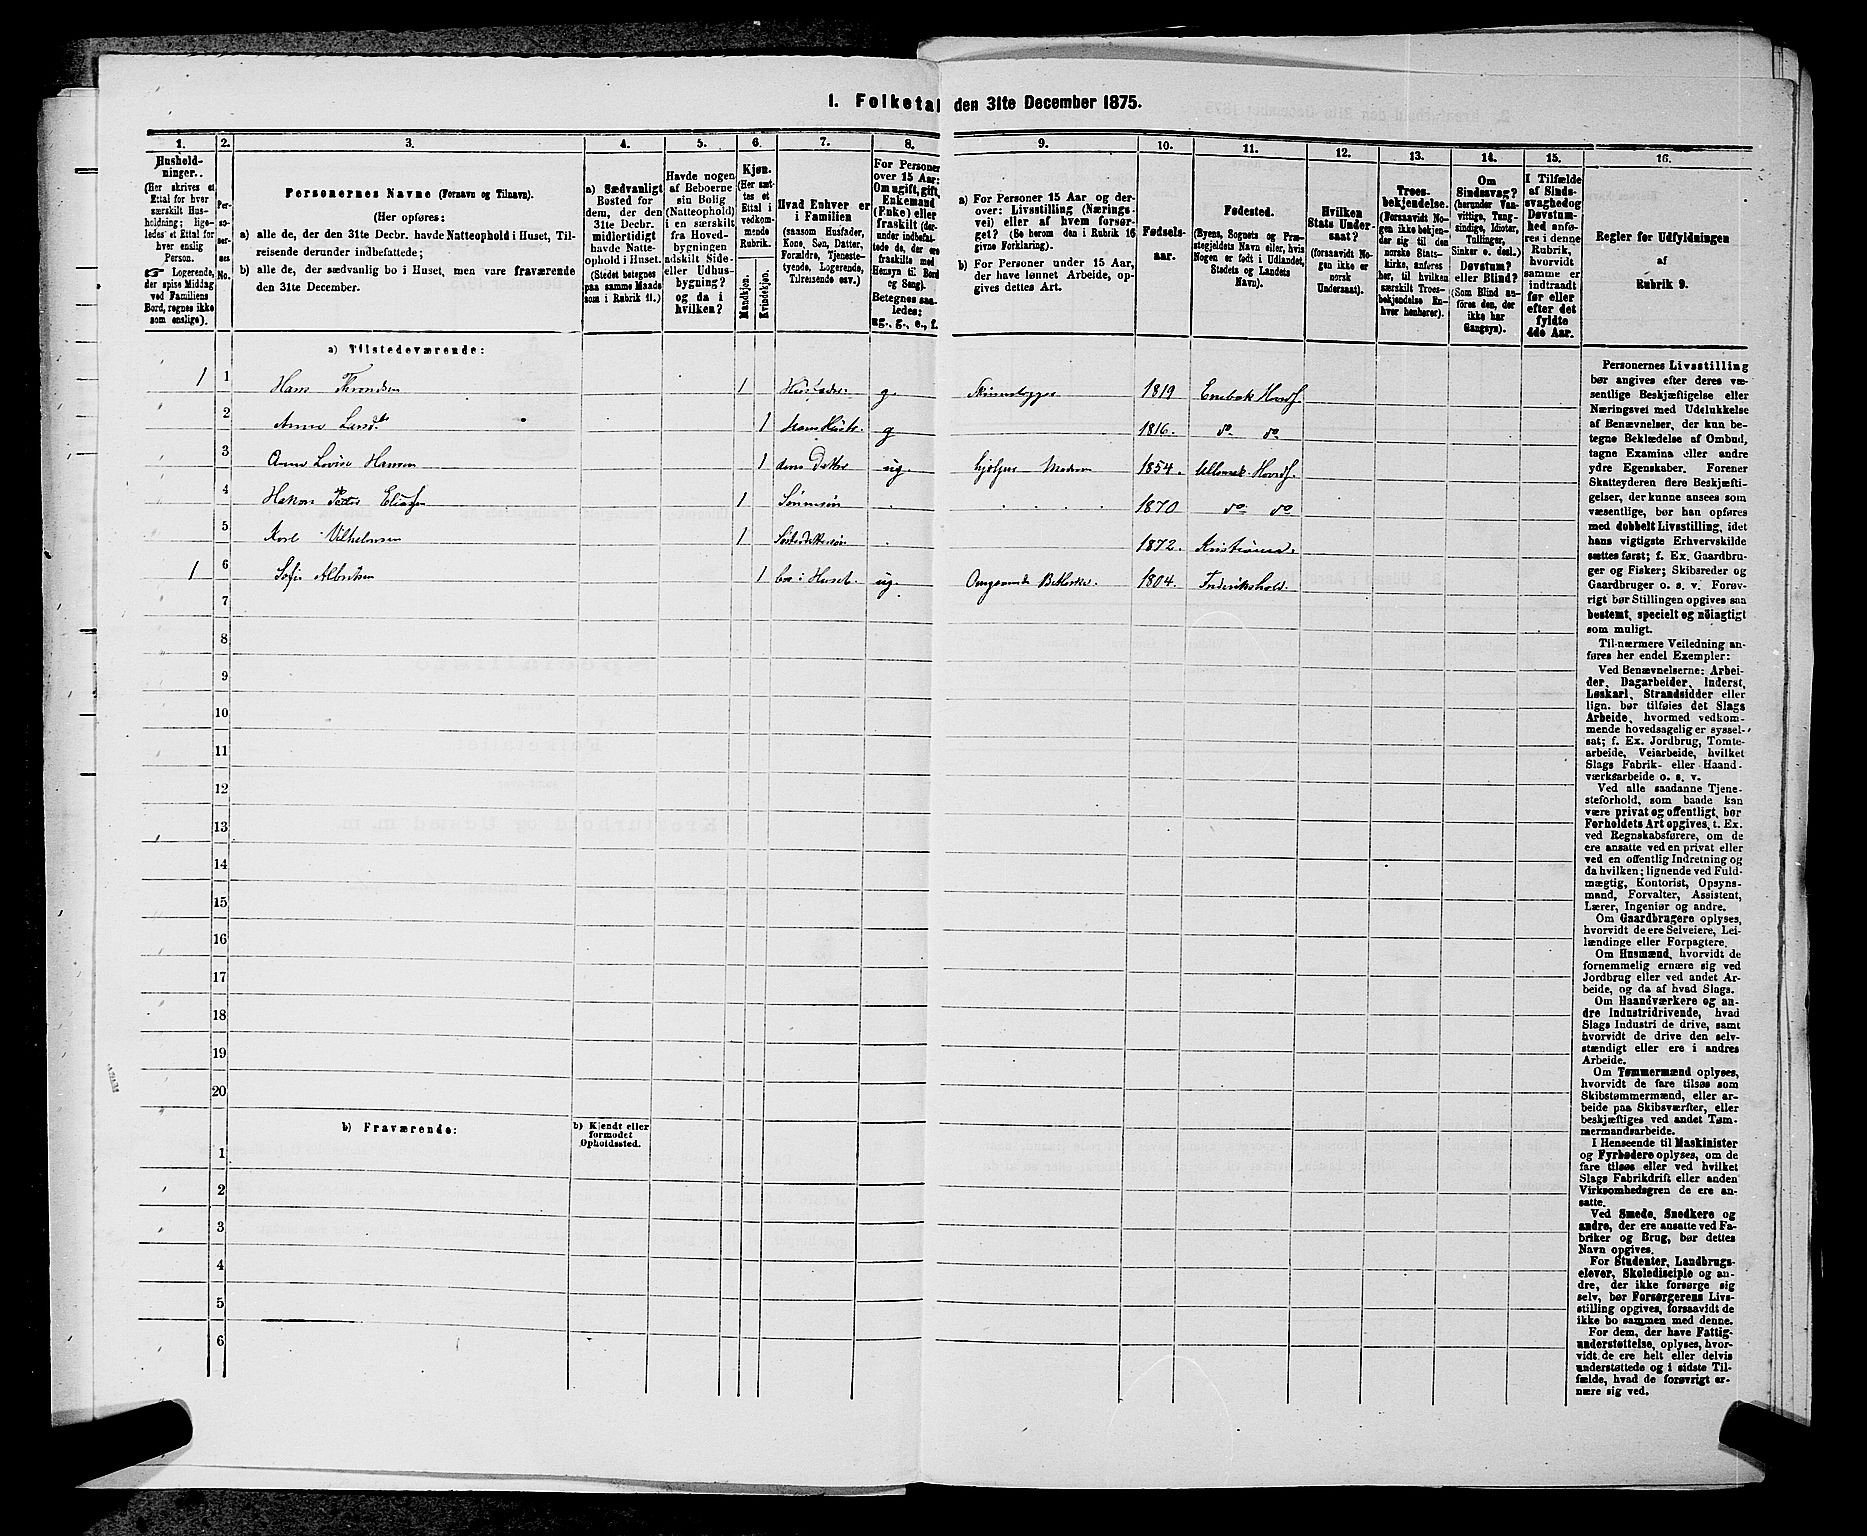 1. Folketal den 31te December 1875.
1.
Hushold-
ninger.
(Her skrives et
Ettal for hver
særskilt Hus-
holdning; lige-
ledes et Ettal for
hver enslig
Person.
☞ Logerende,
der spise Middag
ved Familiens
Bord, regnes ikke
som enslige).
2.
Per-
so-
ner-
nes
No.
3.
Personernes Navne (Fornavn og Tilnavn).
(Her opføres:
a) alle de, der den 31te Decbr. havde Natteophold i Huset, Til-
reisende derunder indbefattede;
b) alle de, der sædvanlig bo i Huset, men vare fraværende
den 31te December.
4.
a) Sædvanligt
Bosted for
dem, der den
31te Decbr.
midlertidigt
havde Natte-
ophold i Huset.
(Stedet betegnes
paa samme Maade
som i Rubrik 11.)
5.
Havde nogen
af Beboerne
sin Bolig
(Natteophold)
i en særskilt
fra Hoved-
bygningen
adskilt Side-
eller Udhus-
bygning?
og da i
hvilken?
6.
Kjøn.
(Her sæt-
tes et
Ettal i
vedkom-
mende
Rubrik.
Mandkjøn.
Kvindekjøn.
7.
Hvad Enhver er
i Familien
(saasom Husfader,
Kone, Søn, Datter,
Forældre, Tjeneste-
tyende, Logerende,
Tilreisende osv.)
8.
For Personer
over 15 Aar:
Om ugift, gift,
Enkemand
(Enke) eller
fraskilt (der-
under indbefat-
tede de, der ere
fraskilte med
Hensyn til Bord
og Seng).
Betegnes saa-
ledes:
ug., g., e., f.
9.
a) For Personer 15 Aar og der-
over: Livsstilling (Nærings-
vei) eller af hvem forsør-
get? (Se herom den i Rubrik 16
givne Forklaring).
b) For Personer under 15 Aar,
der have lønnet Arbeide, op-
gives dettes Art.
10.
Fødsels-
aar.
11.
Fødested.
(Byens, Sognets og Præ-
stegjeldets Navn eller, hvis
Nogen er født i Udlandet,
Stedets og Landets
Navn).
12.
Hvilken
Stats Under-
saat?
(forsaavidt No-
gen ikke er
norsk
Undersaat).
13.
Troes-
bekjendelse.
(Forsaavidt No-
gen ikke bekjen-
der sig til den
norske Stats-
kirke, anføres
her, til hvilken
særskilt Troes-
bekjendelse En-
hver henhører).
14.
Om
Sindssvag?
(herunder Van-
vittige, Tung-
sindige, Idioter,
Tullinger,
Sinker o. desl.)
Døvstum?
eller Blind?
(Som Blind an-
føres den, der
ikke har
Gangsyn).
15.
I Tilfælde
af Sinds-
svaghed og
Døvstum-
hed anfø-
res i denne
Rubrik,
hvorvidt
samme er
indtraadt
før eller
efter det
fyldte
4de Aar.
16.
Regler for Udfyldningen
af
Rubrik 9.
a) Tilstedeværende:
1 1 Hans Throndsen 1 Husfader g. 1819 Enebak Hovds.
2 Anne Larsdtr 1 hans Hustr. g 1816. do do
3 Anne Lovise Hansen 1 dens Datter ug. hjelper Moderen 1854.
4 Hakon Peder Eliasen 1 Sønnesøn 1870 do do
5 Karl Vilhelmsen 1 Søsterdattersøn 1872. Kristiania.
1 6 Sofie Albertsen 1 bor i Huset. ug. 1804. Frederikshald.
7
8
9
10
11
12
13
14
15
16
17
18
19
20
b) Fraværende:
b) Kjendt eller
formodet
Opholdssted.
1
2
3
4
5
6
Personernes Livsstilling
bør angives efter deres væ-
sentlige Beskjæftigelse eller
Næringsvei med Udelukkelse
af Benævnelser, der kun be-
tegne Beklædelse af Ombud,
tagne Examina eller andre
ydre Egenskaber. Forener
Skatteyderen flere Beskjæfti-
gelser, der kunne ansees som
væsentlige, bør han opføres
med dobbelt Livsstilling, idet
hans vigtigste Erhvervskilde
sættes først; f. Ex. Gaardbru-
ger og Fisker; Skibsreder og
Gaardbruger o. s. v. Forøv-
rigt bør Stillingen opgives saa
bestemt, specielt og nöiagtigt
som muligt.
Til nærmere Veiledning an-
føres her endel Exempler:
Ved Benævnelserne: Arbei-
der, Dagarbeider, Inderst,
Løskarl, Strandsidder eller
lign. bør tilføies det Slags
Arbeide, hvormed vedkom-
mende hovedsagelig er syssel-
sat; f. Ex. Jordbrug, Tomte-
arbeide, Veiarbeide, hvilket
Slags Fabrik- eller Haand-
værksarbeide o. s. v.
Ved alle saadanne Tjene-
steforhold, som baade kan
være privat og offentligt, bør
Forholdets Art opgives, t. Ex.
ved Regnskabsførere, om de
ere ansatte ved en privat eller
ved en offentlig Indretning og
da hvilken; lignende ved Fuld-
mægtig, Kontorist, Opsyns-
mand, Forvalter, Assistent,
Lærer, Ingeniør og andre.
Om Gaardbrugere oplyses,
hvorvidt de ere Selveiere, Lei-
lændinge eller Forpagtere.
Om Husmænd, hvorvidt de
fornemmelig ernære sig ved
Jordbrug eller ved andet Ar-
beide, og da af hvad Slags.
Om Haandværkere og an-
dre Industridrivende, hvad
Slags Industri de drive, samt
hvorvidt de drive den selv-
stændigt eller ere i andres
Arbeide.
Om Tømmermænd oplyses,
hvorvidt de fare tilsøs som
Skibstømmermænd, eller ar-
beide paa Skibsværfter, eller
beskjæftiges ved andet Tøm-
mermandsarbeide.
I Henseende til Maskinister
og Fyrbødere oplyses, om de
fare tilsøs eller ved hvilket
Slags Fabrikdrift eller anden
Virksomhedsgren de ere an-
satte.
Ved Smede, Snedkere og
andre, der ere ansatte ved Fa-
briker og Brug, bør dettes
Navn opgives.
For Studenter, Landbrugs-
elever, Skoledisciple og an-
dre, der ikke forsørge sig
selv, bør Forsørgerens Livs-
stilling opgives, forsaavidt de
ikke bo sammen med denne.
For dem, der have Fattig-
understøttelse, oplyses, hvor-
vidt de ere helt eller delvis
understøttede og i sidste Til-
fælde, hvad de forøvrigt er-
nære sig ved.